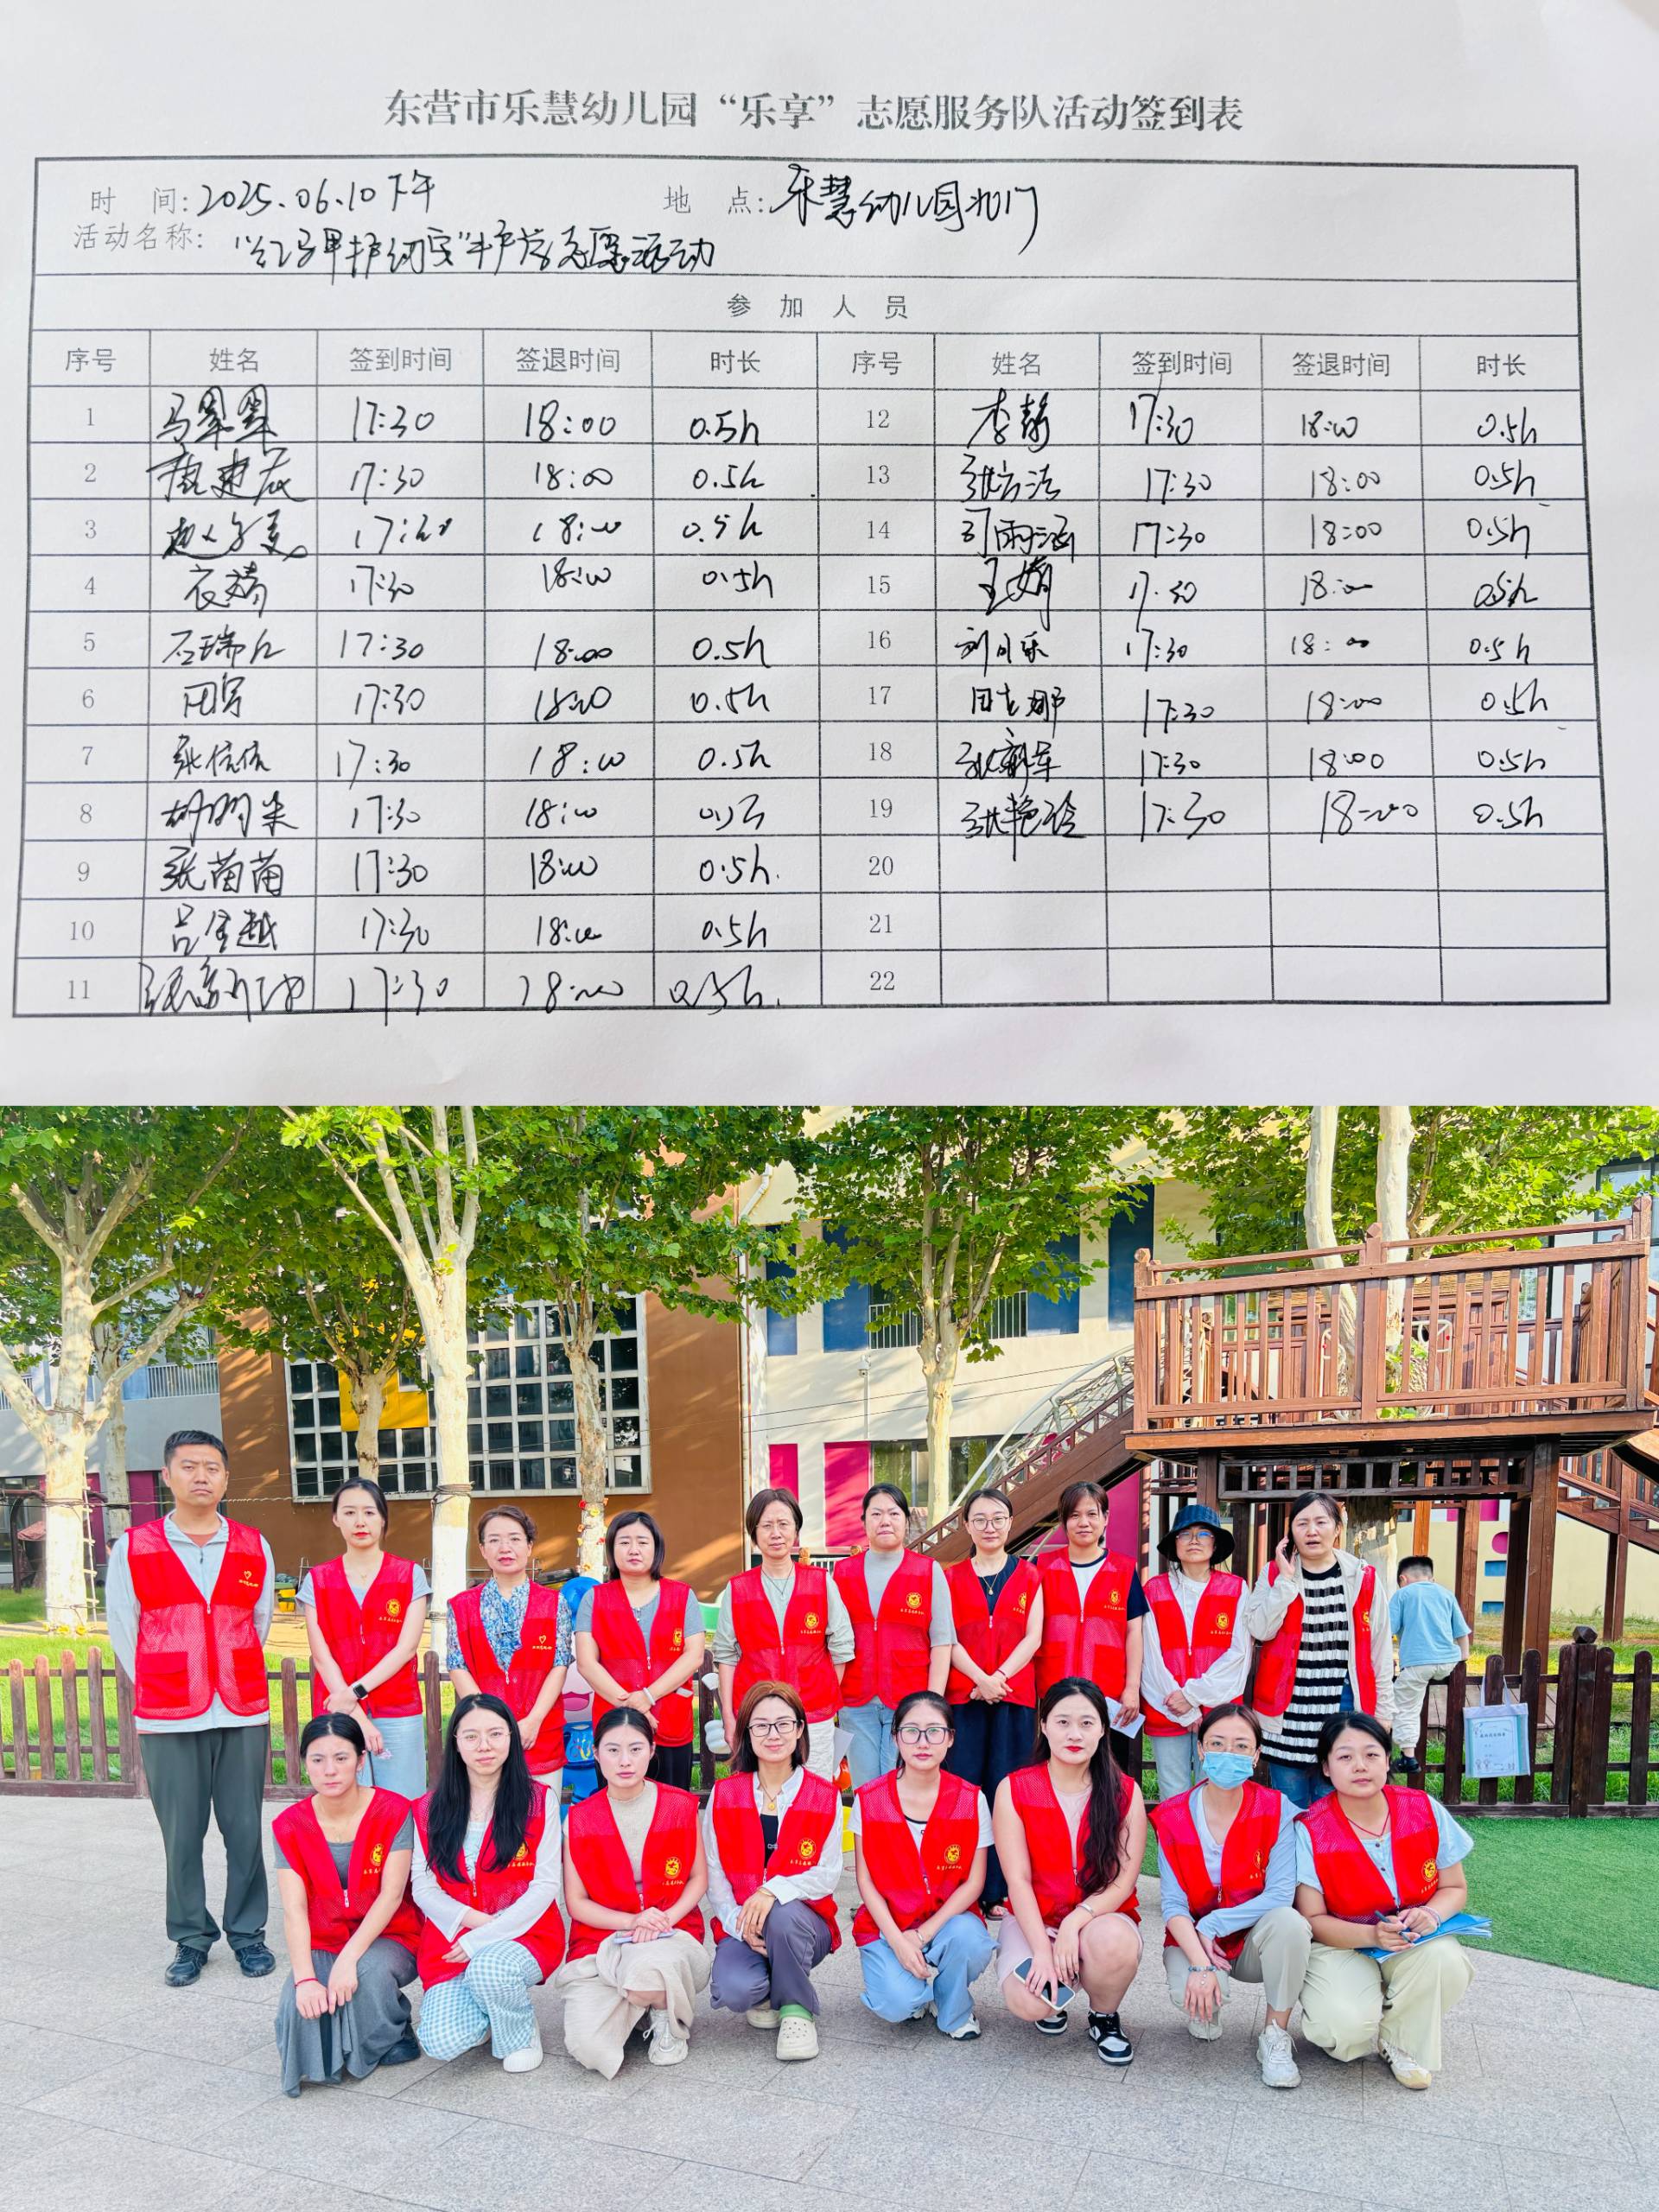 东营市乐慧幼儿园“乐享”志愿服务队活动签到表
时 间: 2025.06.10下午 地 点: 乐慧幼儿园北门
活动名称: “红马甲护幼安”护学志愿活动
参 加 人 员
序号 姓名 签到时间 签退时间 时长 序号 姓名 签到时间 签退时间 时长
1 马翠翠 17:30 18:00 0.5h 12 李静 17:30 18:00 0.5h
2 17:30 18:00 0.5h 13 张云洁 17:30 18:00 0.5h
3 17:30 18:00 0.5h 14 司雨涵 17:30 18:00 0.5h
4 衣婧 17:30 18:00 0.5h 15 王婧 17:30 18:00 0.5h
5 石瑞 17:30 18:00 0.5h 16 刘可乐 17:30 18:00 0.5h
6 田 17:30 18:00 0.5h 17 田 娜 17:30 18:00 0.5h
7 张信信 17:30 18:00 0.5h 18 张新军 17:30 18:00 0.5h
8 胡明 17:30 18:00 0.5h 19 张艳玲 17:30 18:00 0.5h
9 张苗苗 17:30 18:00 0.5h. 20
10 吕金越 17:30 18:00 0.5h 21
11 17:30 18:00 0.5h. 22